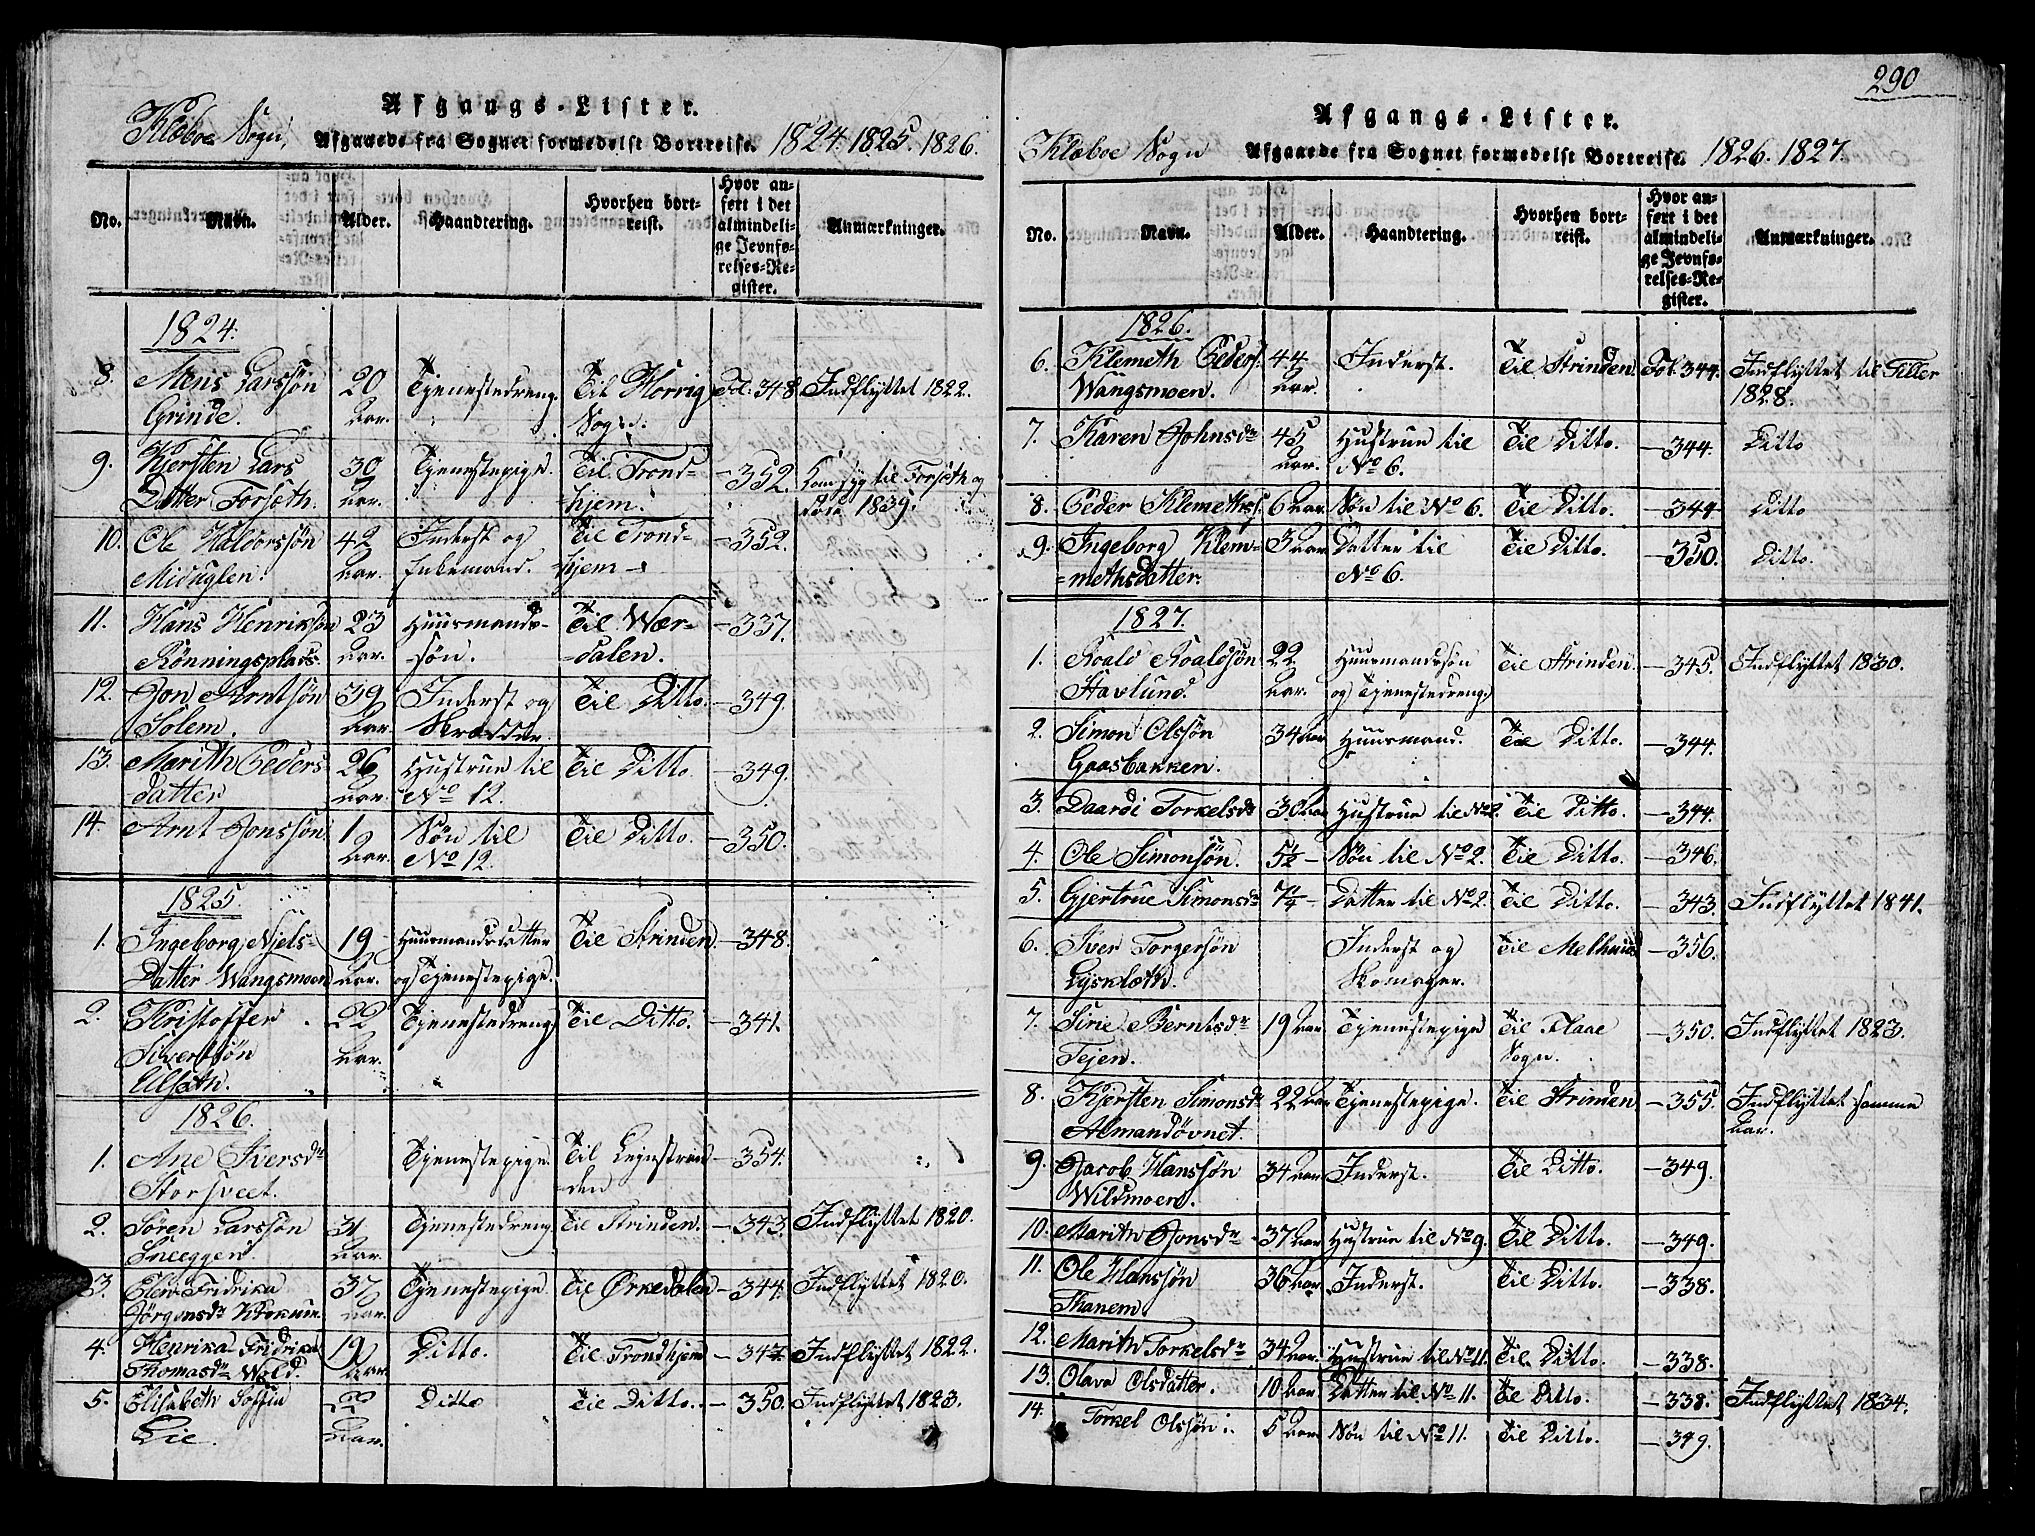 Afgangs-Lister.
Klæboe Sogn, Afgaaede fra Sognet formedelst Bortreise. 1824. 1825. 1826.
No. Navn. Alder. Haandtering. Hvorhen bort-reist. Hvor an-ført i det almindeli-ge Jevnfø-relses-Re-gister. Anmærkninger.
1824.
8. Mens Larssøn 20 Tjenestedreng. Til Horrig Fol. 348 Indflyttet 1822.
Grinde. Aar. Sogn.
9. Kjersten Lars 30 Tjenestepige. Til Trond= — 352. Kom syg til Forseth og
Datter Forseth. Aar. hjem. døde 1839.
10. Ole Haldorssøn 42 Inderst og Til Trond= — 352.
Miduglen. Aar. Enkemand. hjem —
11. Hans Henrikson 23 Huusmands- Til Wær= — 337.
Rönningsplads. Aar. søn. dalen.
12. Jon Arntsøn 39 Inderst og Til Ditto. — 349.
Solem. Aar. Skrædder.
13. Marith Peders 26 Hustrue til Til Ditto. — 349.
datter Aar. No 12.
14. Arnt Jonssøn. 1 Søn til Til Ditto. — 350.
Aar. No 12.
1825.
1. Ingeborg Njels- 19 Huusmandsdatter Til Strinden — 348.
Datter Wangsmoen Aar. og Tjenestepige.
2. Kristoffer 22 Tjenestedreng Til Ditto. — 341.
Sivertsøn Aar.
Ulsæth.
1826.
1. Ane Iversdr Tjenestepige. Til Lejnstran — 354.
Storsveet. den
2. Søren Larssøn 31 Tjenestedreng Til Strinden. — 343. Indflyttet 1820.
Sneeggen. Aar.
3. Elen Fridrika 37 Tjenestepige. Til Ørkedalen — 344. Indflyttet 1820.
Jörgensdr Aar.
4. Henrika Fridrika 19 Ditto. Til Trondhjem — 347. Indflyttet 1822.
Thomasdr Wold. Aar.
5. Elisabeth Soffia 22 Ditto Til Ditto. — 350. Indflyttet 1823.
Lie. Aar.
290
Afgangs-Lister.
Klæboe Sogn Afgaaede fra Sognet formedelst Bortreise. 1826. 1827.
No. Navn. Alder. Haandtering. Hvorhen bort-reist. Hvor an-ført i det almindeli-ge Jevnfø-relses-Re-gister. Anmærkninger.
1826.
6. Klemeth Peders. 44 Inderst. Til Strinden Fol. 344. Indflyttet til Tiller
Wangsmoen. Aar. 1828.
7. Karen Johnsdr 45 Hustrue til Til Ditto. — 344. Ditto
Aar. No 6.
8. Peder Klemeths. 6 Aar Søn til No 6. Til Ditto. — 344 Ditto
9. Ingeborg Klem= 3 Aar Datter til Til Ditto. — 350. Ditto.
=methsdatter. No 6.
1827.
1. Roald Roaldsøn 22 Huusmandssøn Til Strinden. — 345. Indflyttet 1830.
Stavlund. Aar. og Tjenestedreng.
2. Simon Olssøn 34 Aar Huusmand. Til Ditto. — 344.
Gaasbakken.
3. Daardi Torkelsdr 30 Aar Hustrue til No 2. Til Ditto. — 344.
4. Ole Simonsøn. 5½ — Søn til No 2. Til Ditto. — 346.
5. Gjertrue Simonsdr 7¼ — Datter til No 2. Til Ditto. — 343. Indflyttet 1841.
6. Iver Torgersøn Inderst og Til Melhuus — 356.
Lysklæth. Skomager.
7. Sirie Berntsdr 19 Aar Tjenestepige Til Flaae — 350. Indflyttet 1823.
Tejen. Sogn.
8. Kjersten Simonsdr 22 Aar Tjenestepige. Til Strinden — 355. Indflyttet samme
Almandøvnet. Aar.
9. Jacob Hanssøn 34 Aar Inderst. Til Ditto. — 349.
Wildmoen.
10. Marith Jonsdr 37 Aar Hustrue til No 9. Til Ditto. — 349.
11. Ole Hanssøn 36 Aar Inderst. Til Ditto. — 338.
Thanem.
12. Marith Torkelsdr 34 Aar. Hustrue til No 11. Til Ditto. — 338.
13. Olava Olsdatter. 10 Aar Datter til No 11. Til Ditto. — 338. Indflyttet 1834.
14. Torkel Olssøn. 5 Aar Søn til No 11. Til Ditto. — 349.